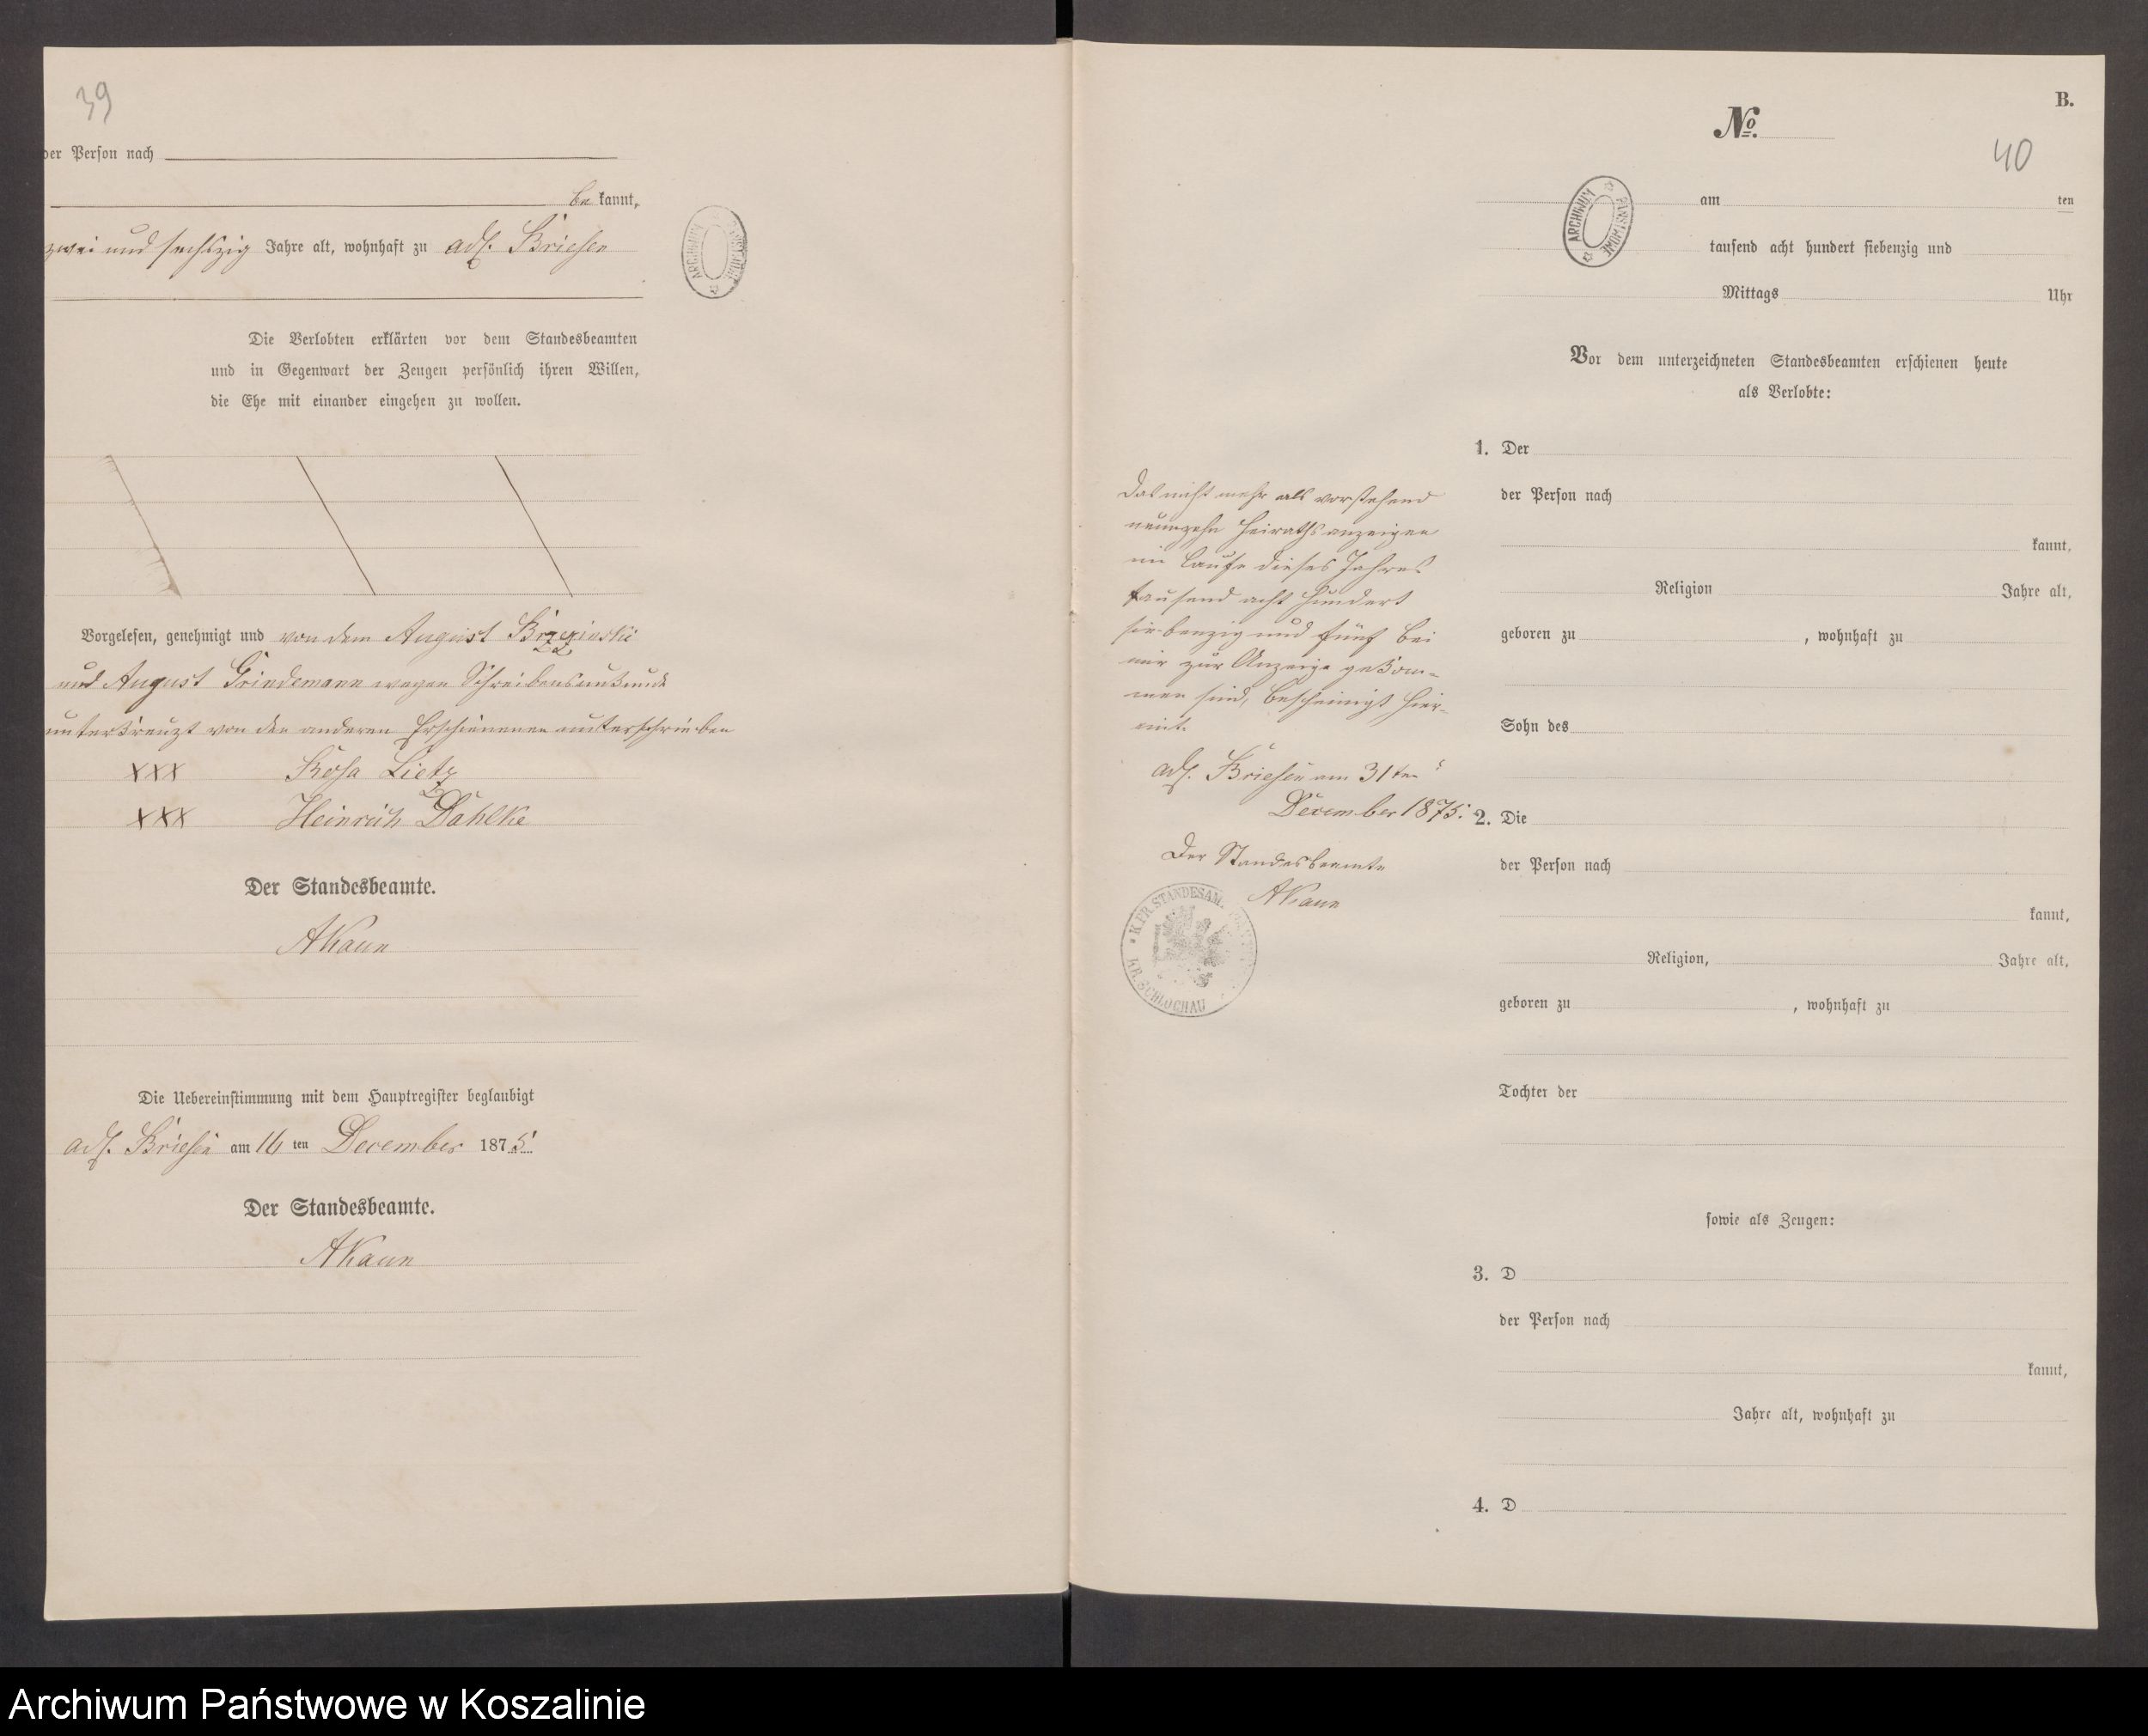 39
der Perſon nach
be kannt,
zwei und sechszig Jahre alt, wohnhaft zu adl. Briesen
Die Verlobten erklärten vor dem Standesbeamten
und in Gegenwart der Zeugen perſönlich ihren Willen,
die Ehe mit einander eingehen zu wollen.
Vorgeleſen, genehmigt und von dem August Brzezinski
und August Grindemann wegen Schreibensunkunde
unterkreuzt von den anderen Erschienenen unterschrieben
XXX Rosa Lietz
XXX Heinrich Dahlke
Der Standesbeamte.
AKaun
Die Uebereinſtimmung mit dem Hauptregiſter beglaubigt
adl. Briesen am 16 ten December 1875.
Der Standesbeamte.
AKaun
ARCHIWUM PAŃSTWOWE
Das nicht mehr als vorstehend
neunzehn Heirathsanzeigen
im Laufe dieses Jahres
tausend acht hundert
siebenzig und fünf bei
mir zur Anzeige gekom-
men sind, bescheinigt hier-
mit.
adl. Briesen am 31ten
December 1875.
Der Standesbeamte
AKaun
K. PR. STANDESAMT
KR. SCHLOCHAU
B.
No.
40
ARCHIWUM PAŃSTWOWE
am ten
tauſend acht hundert ſiebenzig und
Mittags Uhr
Vor dem unterzeichneten Standesbeamten erſchienen heute
als Verlobte:
1. Der
der Perſon nach
kannt,
Religion Jahre alt,
geboren zu , wohnhaft zu
Sohn des
2. Die
der Perſon nach
kannt,
Religion, Jahre alt,
geboren zu , wohnhaft zu
Tochter der
ſowie als Zeugen:
3. D
der Perſon nach
kannt,
Jahre alt, wohnhaft zu
4. D
Archiwum Państwowe w Koszalinie